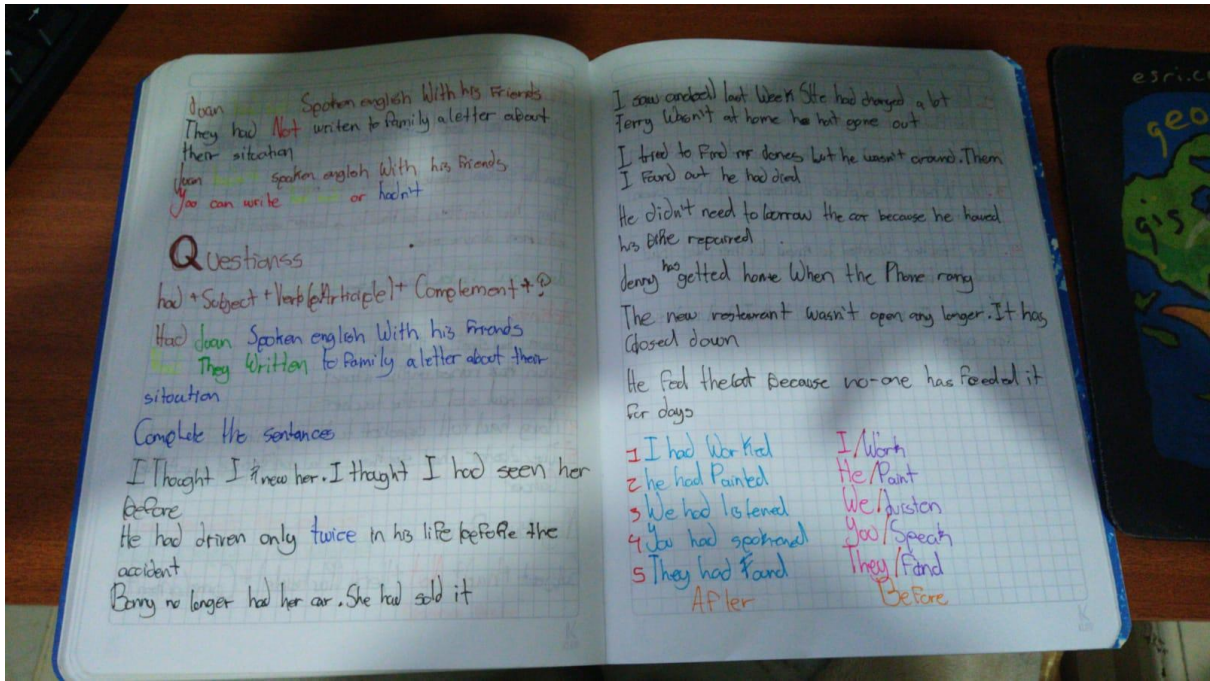 Joan Spoken english With his Friends
They had Not writen to family a letter about
their situation
Joan spoken english With his Friends
You can write or hadn't
Questionss
had + Subject + Verb (partriciple) + Complement + ?
Had Joan Spoken english With his Friends
They Written to family a letter about their
sitoation
Complete the sentences
I Thought I knew her. I thaght I had seen her
before
He had driven only twice in his life before the
accident
Bonny no longer had her car. She had sold it
I saw last Week She had changed a lot
Terry Wasn't at home he hat gone out
I tried to Find mr dones but he wasn't around. Them
I Found out he had died
He didn't need to borrow the car because he haved
his Bike repaired
denny has getted home When the Phone rang
The new restaurant wasn't open any longer. It has
Closed down
He Feel the cat Because no-one has Feeded it
For days
1 I had Worked I/Work
2 he had Painted He/Paint
3 We had listened We/
4 You had You/Speak
5 They had Found They/Fand
After Before
esri.c
geo
gis